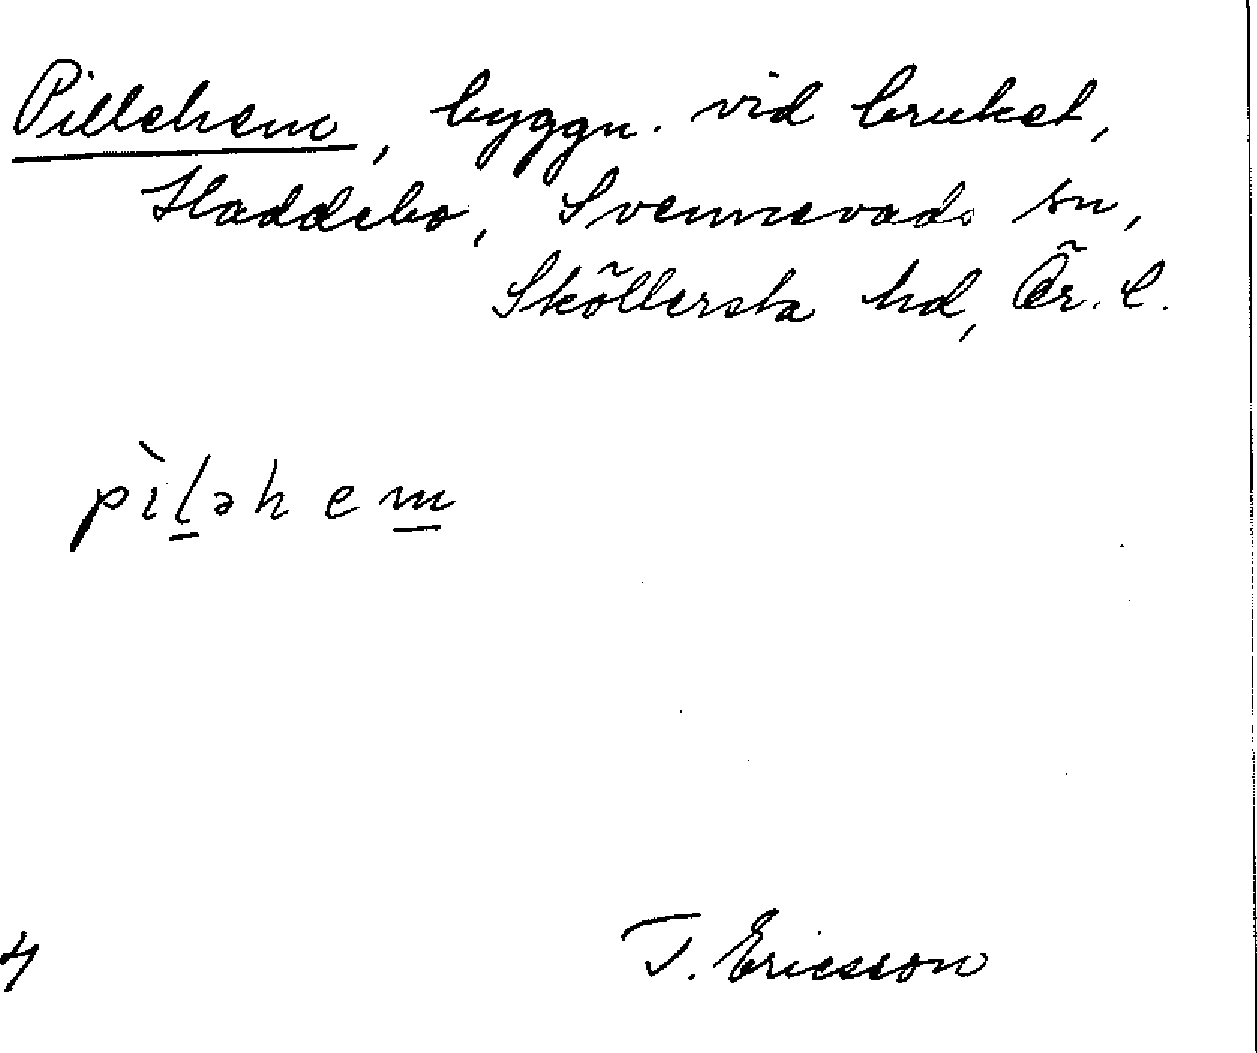 Pillehem, byggn. vid bruket,
Haddebo, Svennevads sn,
Sköllersta hd, Ör. l.
pìḻəhem̲
4
T. Ericsson